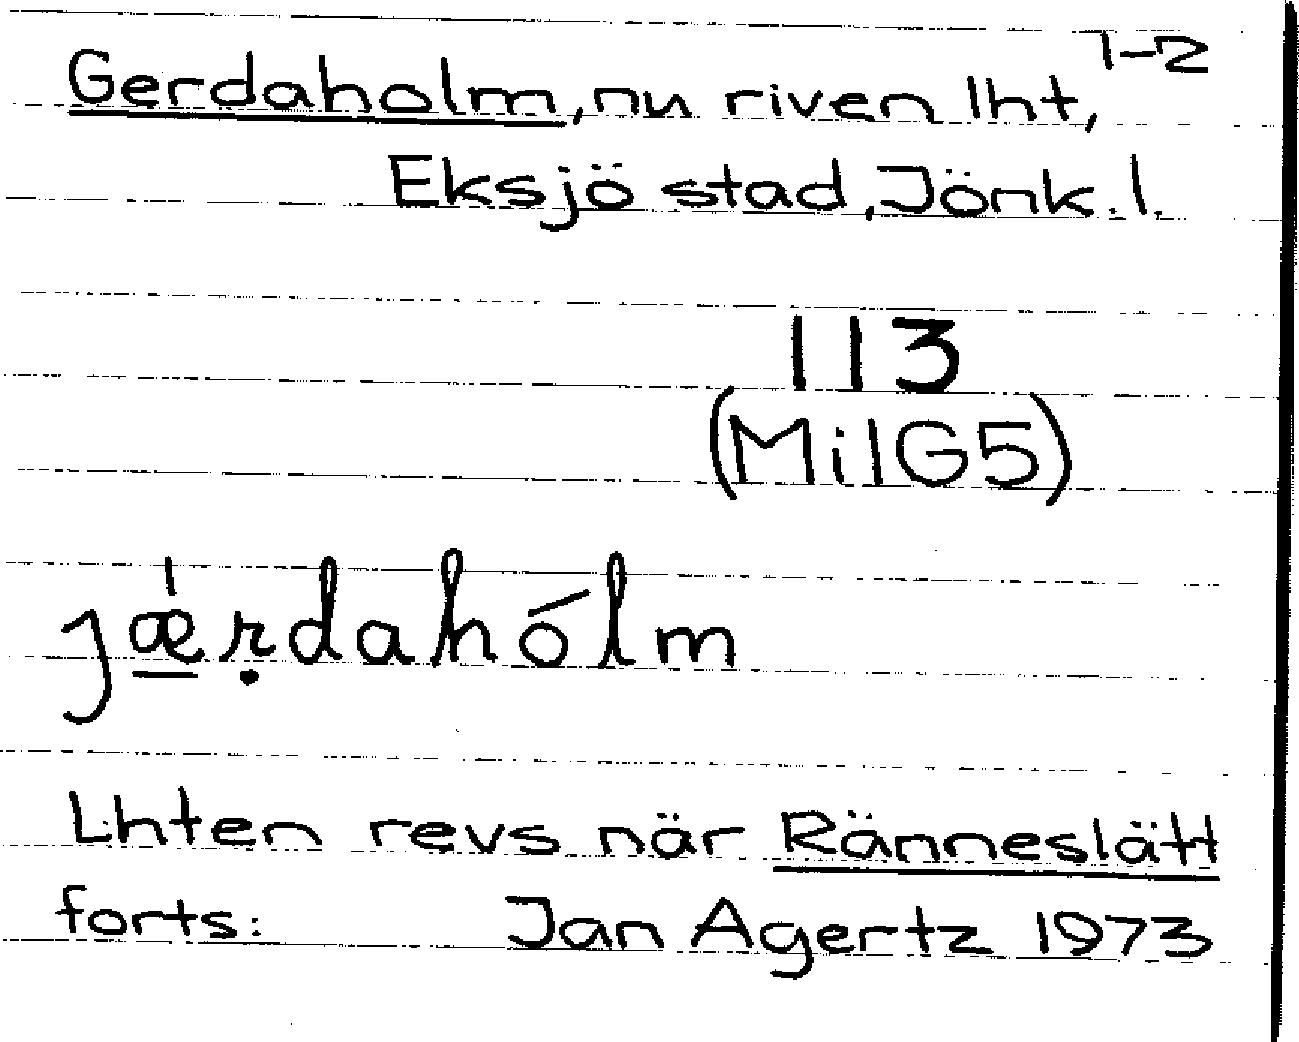 1-2
Gerdaholm, nu riven lht,
Eksjö stad, Jönk. l.
113
(MilG5)
jǽ̱ṛdahólm
Lhten revs när Ränneslätt
forts: Jan Agertz 1973